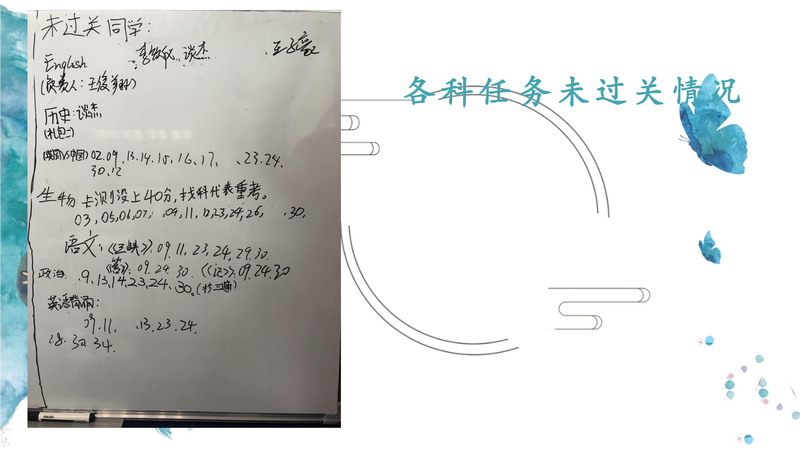 各科任务未过关情况
未过关同学:
English 谈杰
(负责人:王俊翔)
历史:谈杰
02.09、13.14.15、16、17、、23.24.
30.12
生物 卡测没上40分,找科代表重考。
03、05,06,07, 09,11,12,23,24,26, 30.
语文:《三峡》:09.11,23,24,29.30
《答》:09.24.30 《记》:09.24.30
政治: 9、13,14,23,24、30.
英语背诵:
09.11、13.23.24.
28.30.34.